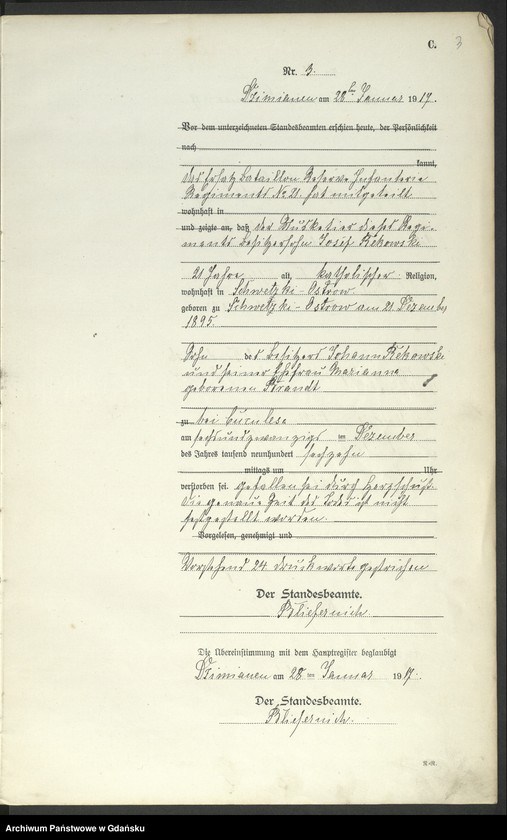 C.
3
Nr. 3.
Dzimianen am 28ten Januar 1917.
Vor dem unterzeichneten Standesbeamten erschien heute, der Persönlichkeit
nach
kannt,
das Ersatz Bataillon Reserve Infanterie
Regiments No 21. hat mitgeteilt
wohnhaft in
und zeigte an, daß der Musketier dieses Regi-
ments Besitzersohn Josef Rekowski
21 Jahre alt, katholischer Religion,
wohnhaft in Schwetzki-Ostrow
geboren zu Schwetzki-Ostrow am 21. Dezember
1895.
Sohn des Besitzers Johann Rekowski
und seiner Ehefrau Marianna
geborenen Brandt
zu bei Buculese
am sechsundzwanzigs ten Dezember
des Jahres tausend neunhundert sechzehn
mittags um Uhr
verstorben sei. gefallen sei durch Herzschuß.
Die genaue Zeit des Todes ist nicht
festgestellt worden.
Vorgelesen, genehmigt und
Vorstehend 24 Druckworte gestrichen
Der Standesbeamte.
Die Übereinstimmung mit dem Hauptregister beglaubigt
Dzimianen am 28ten Januar 1917.
Der Standesbeamte.
Archiwum Państwowe w Gdańsku